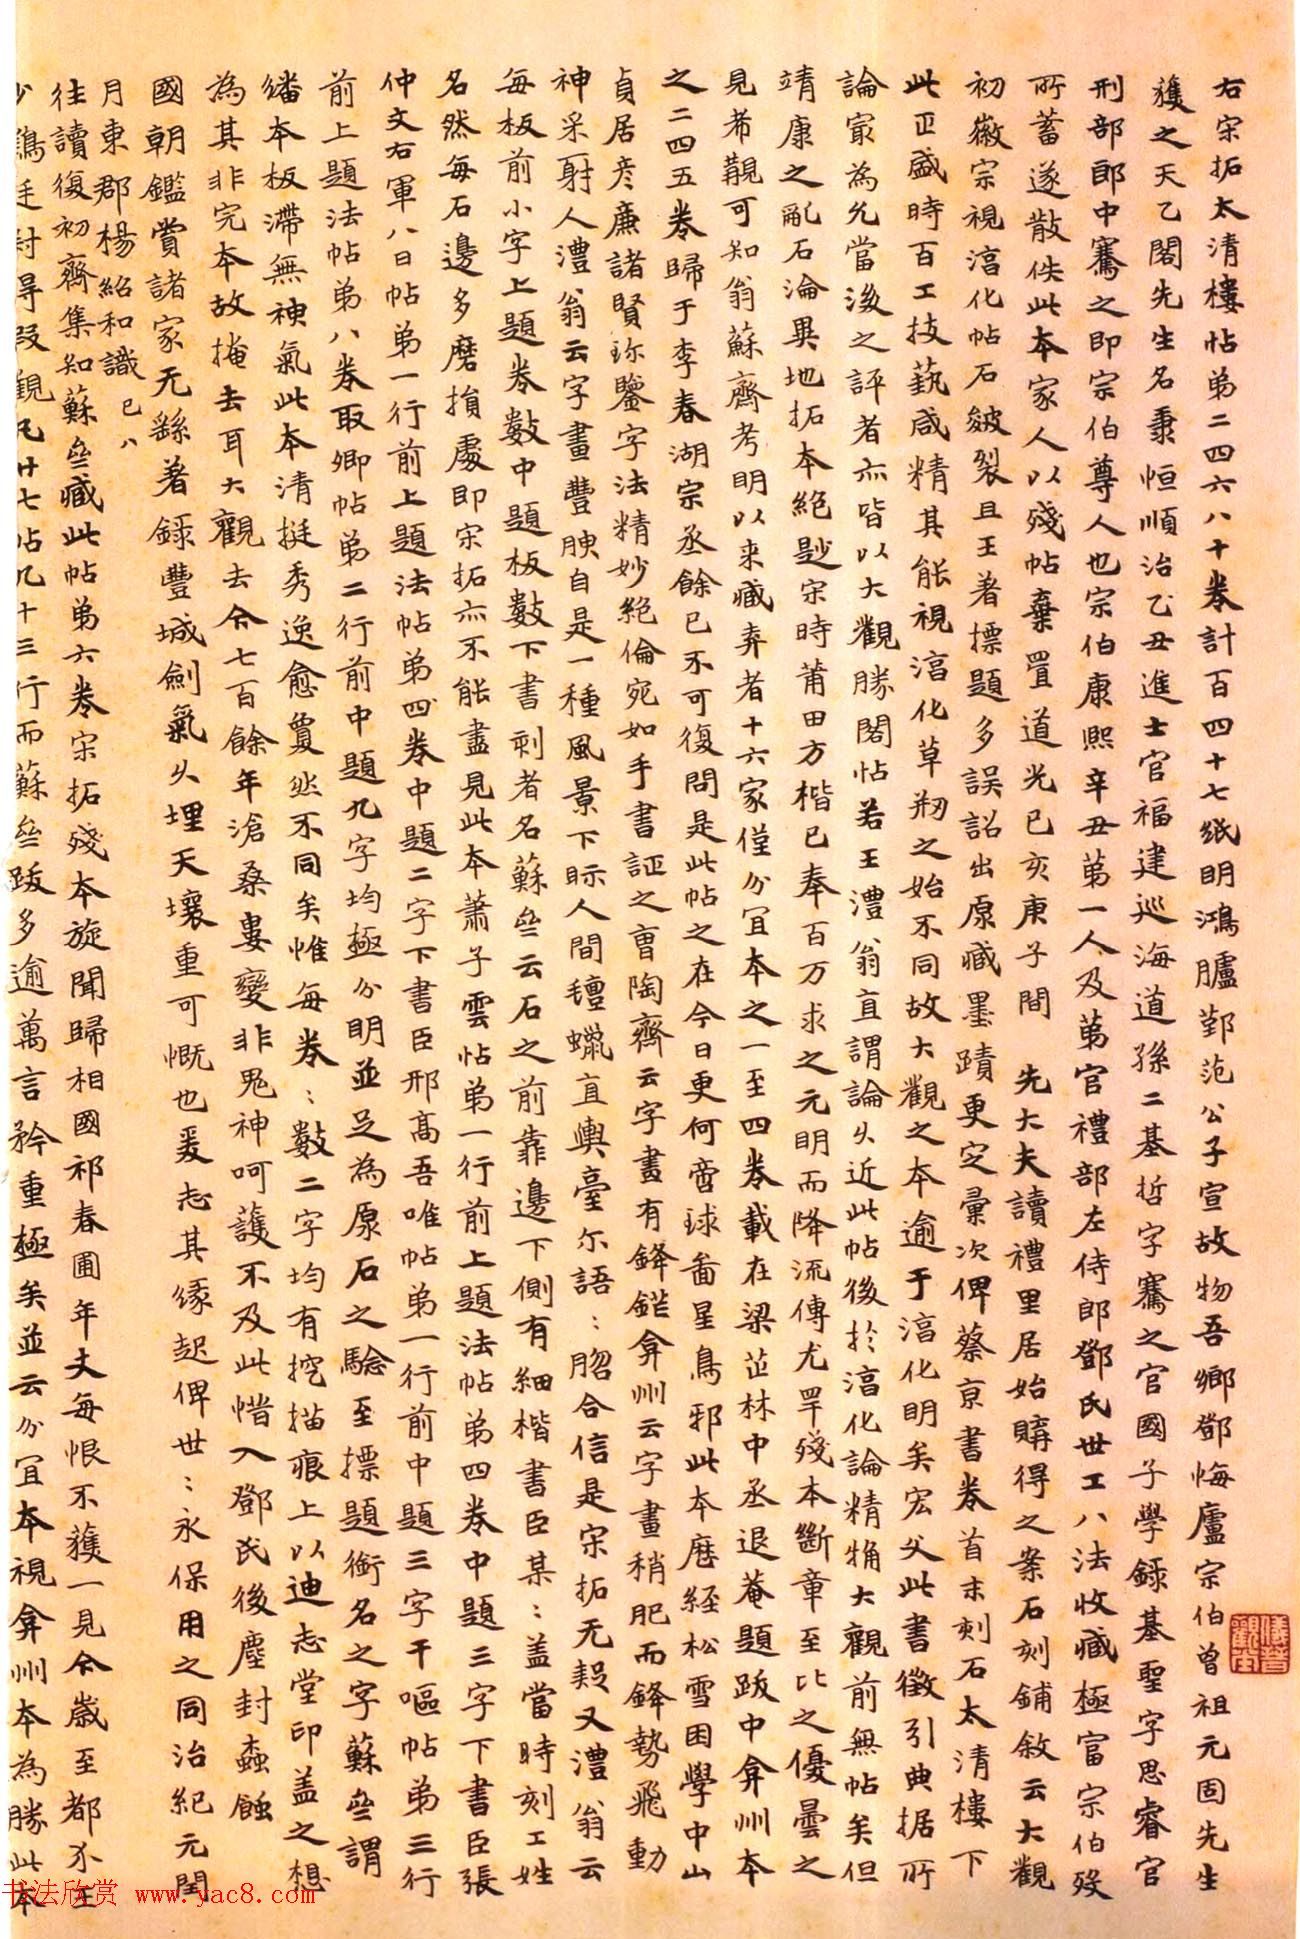 右宋拓太清樓帖弟二四六八十卷計百四十七紙明鴻臚鄞范公子宣故物吾鄉鄧悔廬宗伯曾祖元固先生
獲之天乙閣先生名秉恒順治乙丑進士官福建巡海道孫二基哲字騫之官國子學錄基聖字思睿官
刑部郎中騫之即宗伯尊人也宗伯康熙辛丑弟一人及第官禮部左侍郎鄧氏世工八法收藏極富宗伯歿
所蓄遂散佚此本家人以殘帖棄置道光己亥庚子間 先大夫讀禮里居始購得之案石刻鋪敘云大觀
初徽宗視淳化帖石皴裂且王著摽題多誤詔出原藏墨蹟更定彙次俾蔡京書卷首末刻石太清樓下
此正盛時百工技藝咸精其能視淳化草刱之始不同故大觀之本逾于淳化明矣宏父此書徵引典据所
論冣為允當後之評者亦皆以大觀勝閣帖若王澧翁直謂論久近此帖後於淳化論精觕大觀前無帖矣但
靖康之亂石淪異地拓本絕尟宋時莆田方楷已奉百万求之元明而降流傳尤罕殘本斷章至比之優曇之
見希覯可知翁蘇齋考明以來藏弆者十六家僅分宜本之一至四卷載在梁茝林中丞退菴題跋中弇州本
之二四五卷歸于李春湖宗丞餘已不可復問是此帖之在今日更何啻球畣星鳥邪此本歷經松雪困學中山
貞居彦廉諸賢珎鑒字法精妙絕倫宛如手書証之曹陶齋云字畫有鋒鋩弇州云字畫稍肥而鋒勢飛動
神采射人澧翁云字畫豐腴自是一種風景下眎人間氊蠟直輿臺尔語〻脗合信是宋拓无疑又澧翁云
每板前小字上題卷數中題板數下書刺者名蘇坣云石之前靠邊下側有細楷書臣某〻盖當時刻工姓
名然每石邊多磨損處即宋拓亦不能盡見此本蕭子雲帖弟一行前上題法帖弟四卷中題三字下書臣張
仲文右軍八日帖弟一行前上題法帖弟四卷中題二字下書臣邢高吾唯帖弟一行前中題三字干嘔帖弟三行
前上題法帖弟八卷取卿帖弟二行前中題九字均極分明並足為原石之驗至摽題銜名之字蘇坣謂
繙本板滯無神氣此本清挺秀逸愈夐然不同矣惟每卷〻數二字均有挖描痕上以迪志堂印盖之想
為其非完本故掩去耳大觀去今七百餘年滄桑婁變非鬼神呵護不及此惜入鄧氏後塵封蟲蝕
國朝鑑賞諸家无繇著錄豐城劍氣久埋天壤重可慨也爰志其緣起俾世〻永保用之同治紀元閏
月東郡楊紹和識 己八
往讀復初齋集知蘇坣藏此帖弟六卷宋拓殘本旋聞歸相國祁春圃年丈每恨不獲一見今歲至都
觀凡廿七帖九十三行而蘇坣跋多逾萬言矜重極矣並云分宜本視弇州本為勝此本
書法欣赏 www.yac8.com